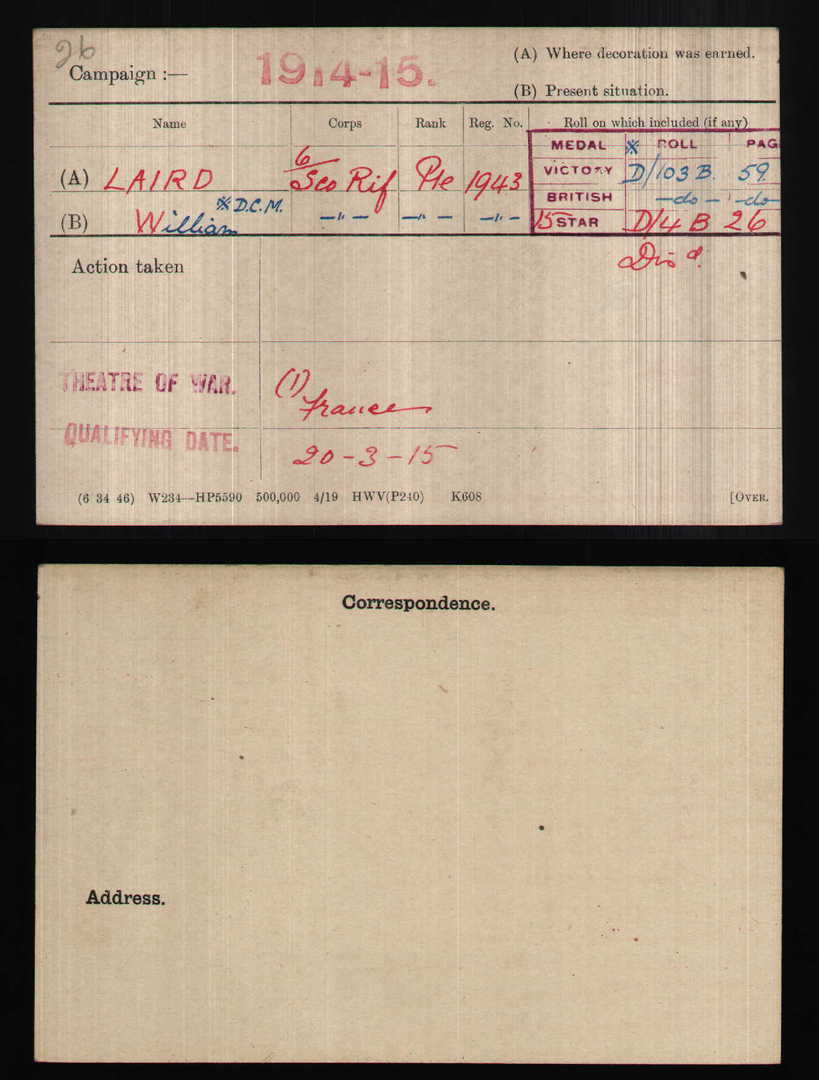 26
Campaign :—
1914-15.
(A) Where decoration was earned.
(B) Present situation.
Name Corps Rank Reg. No. Roll on which included (if any)
MEDAL ※ ROLL PAG
(A) LAIRD 6/Sco Rif Pte 1943 VICTORY D/103 B. 59
※ D.C.M. BRITISH —do— —do—
(B) William —"— —"— —"— 15 STAR D/4 B 26
Action taken Dis d.
THEATRE OF WAR. (1) France
QUALIFYING DATE. 20-3-15
(6 34 46) W234—HP5590 500,000 4/19 HWV(P240) K608 [OVER.
Correspondence.
Address.